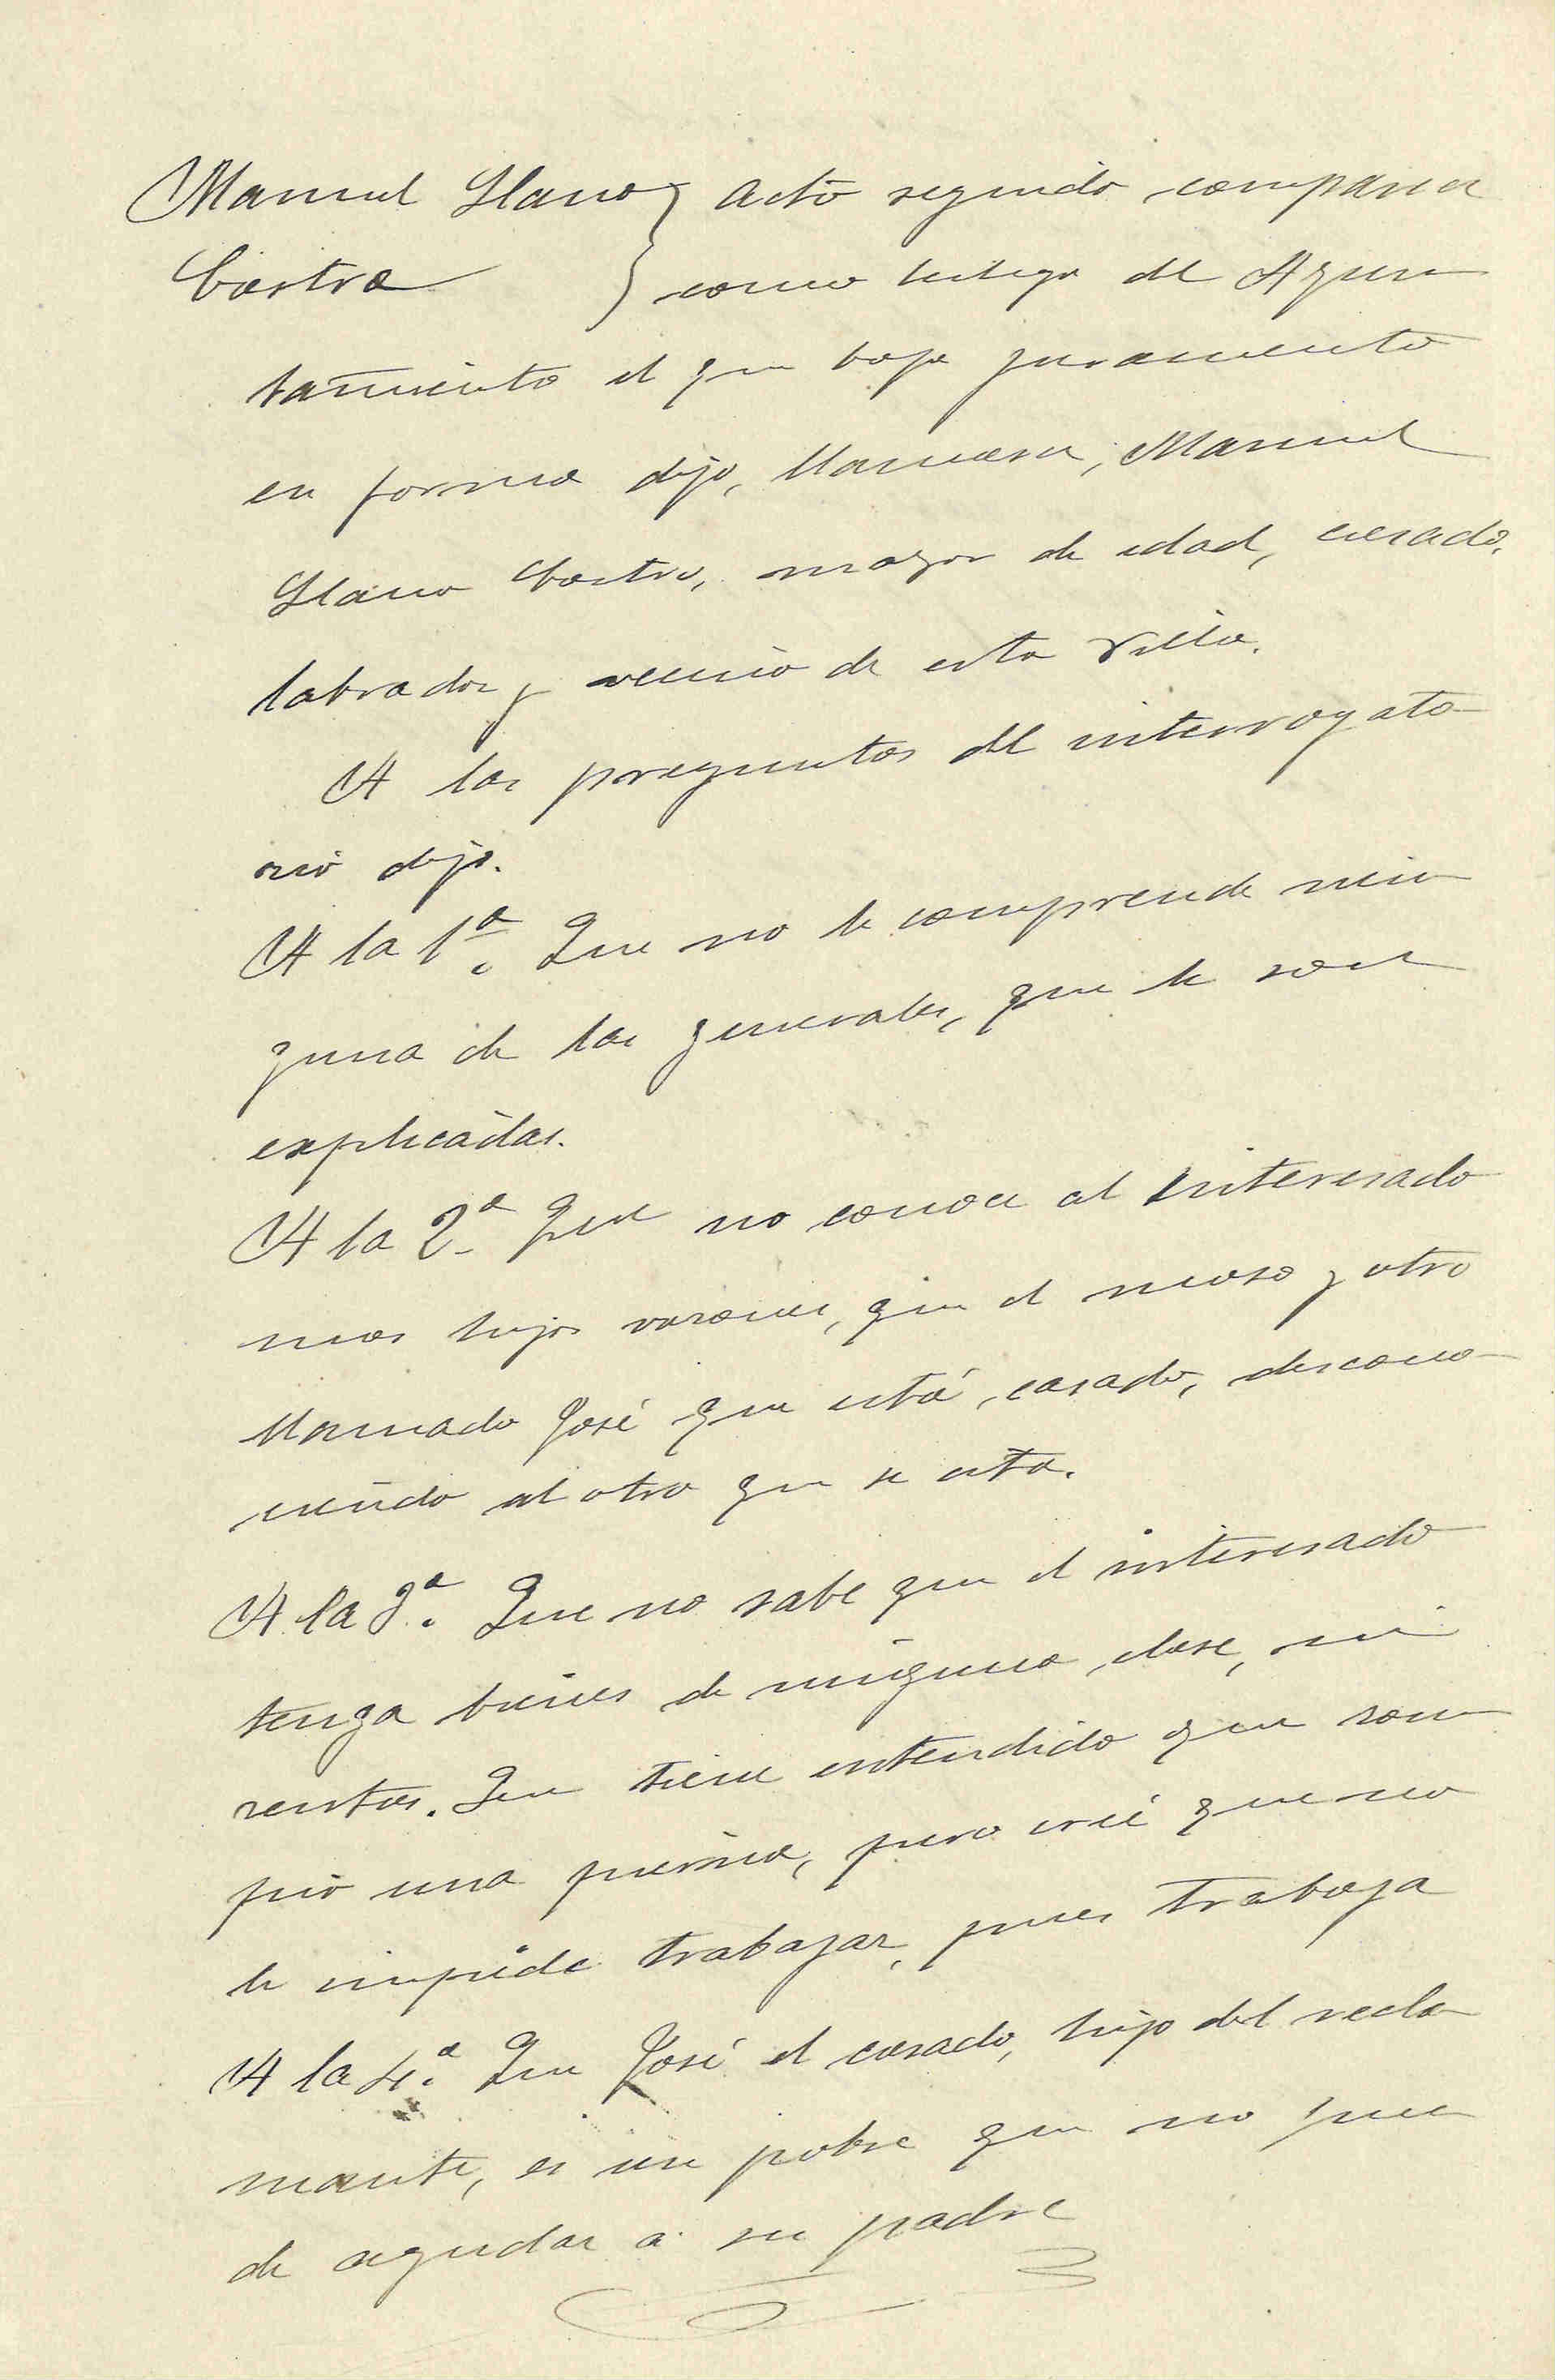 Manuel Llano } Acto seguido comparece
Castro } como testigo del Ayun
tamiento el que bajo juramento
en forma dijo, llamarse, Manuel
Llano Castro, mayor de edad, casado,
labrador y vecino de esta Villa.
A las preguntas del interrogato-
rio dijo.
A la 1ª. Que no le comprende nin
guna de las generales, que le son
explicadas.
A la 2ª Que no conoce al interesado
mas hijos varones, que el mozo y otro
llamado José que está casado, descono-
ciendo al otro que se cita.
A la 3ª. Que no sabe que el interesado
tenga bienes de ninguna clase, ni
rentas. Que tiene entendido que rom
pió una pierna, pero creé que no
le impide trabajar, pues trabaja
A la 4ª. Que José el casado, hijo del recla
mante, es un pobre que no pue
de ayudar a su padre